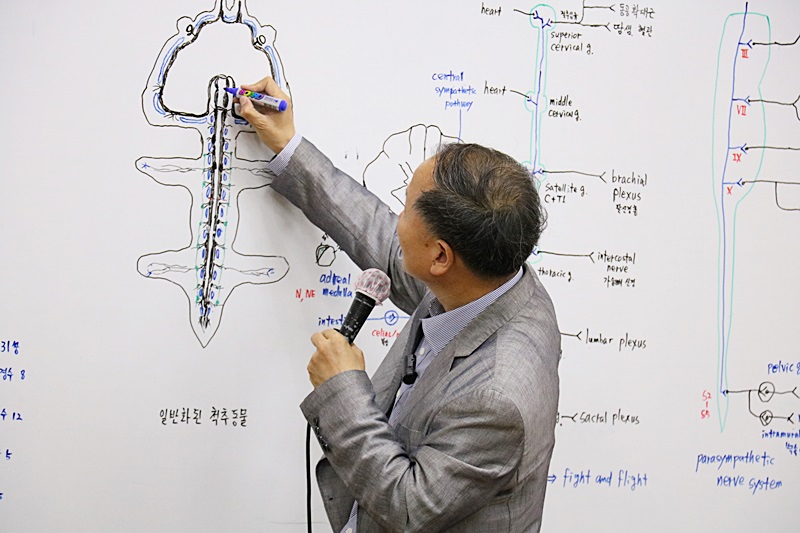 heart
동공확대근
땀샘 혈관
superior
cervical g.
central
sympathetic
pathway
heart
middle
cervical g.
satellite g.
C+T1
brachial
plexus
thoracic g
intercostal
nerve
adreal
medella
N, NE
intest
celiac/
lumbar plexus
sacral plexus
⇒ fight and flight
일반화된 척추동물
31쌍
경수 8
수 12
5
III
VII
IX
X
S2
S4
pelvic g
intramural
parasympathetic
nerve system